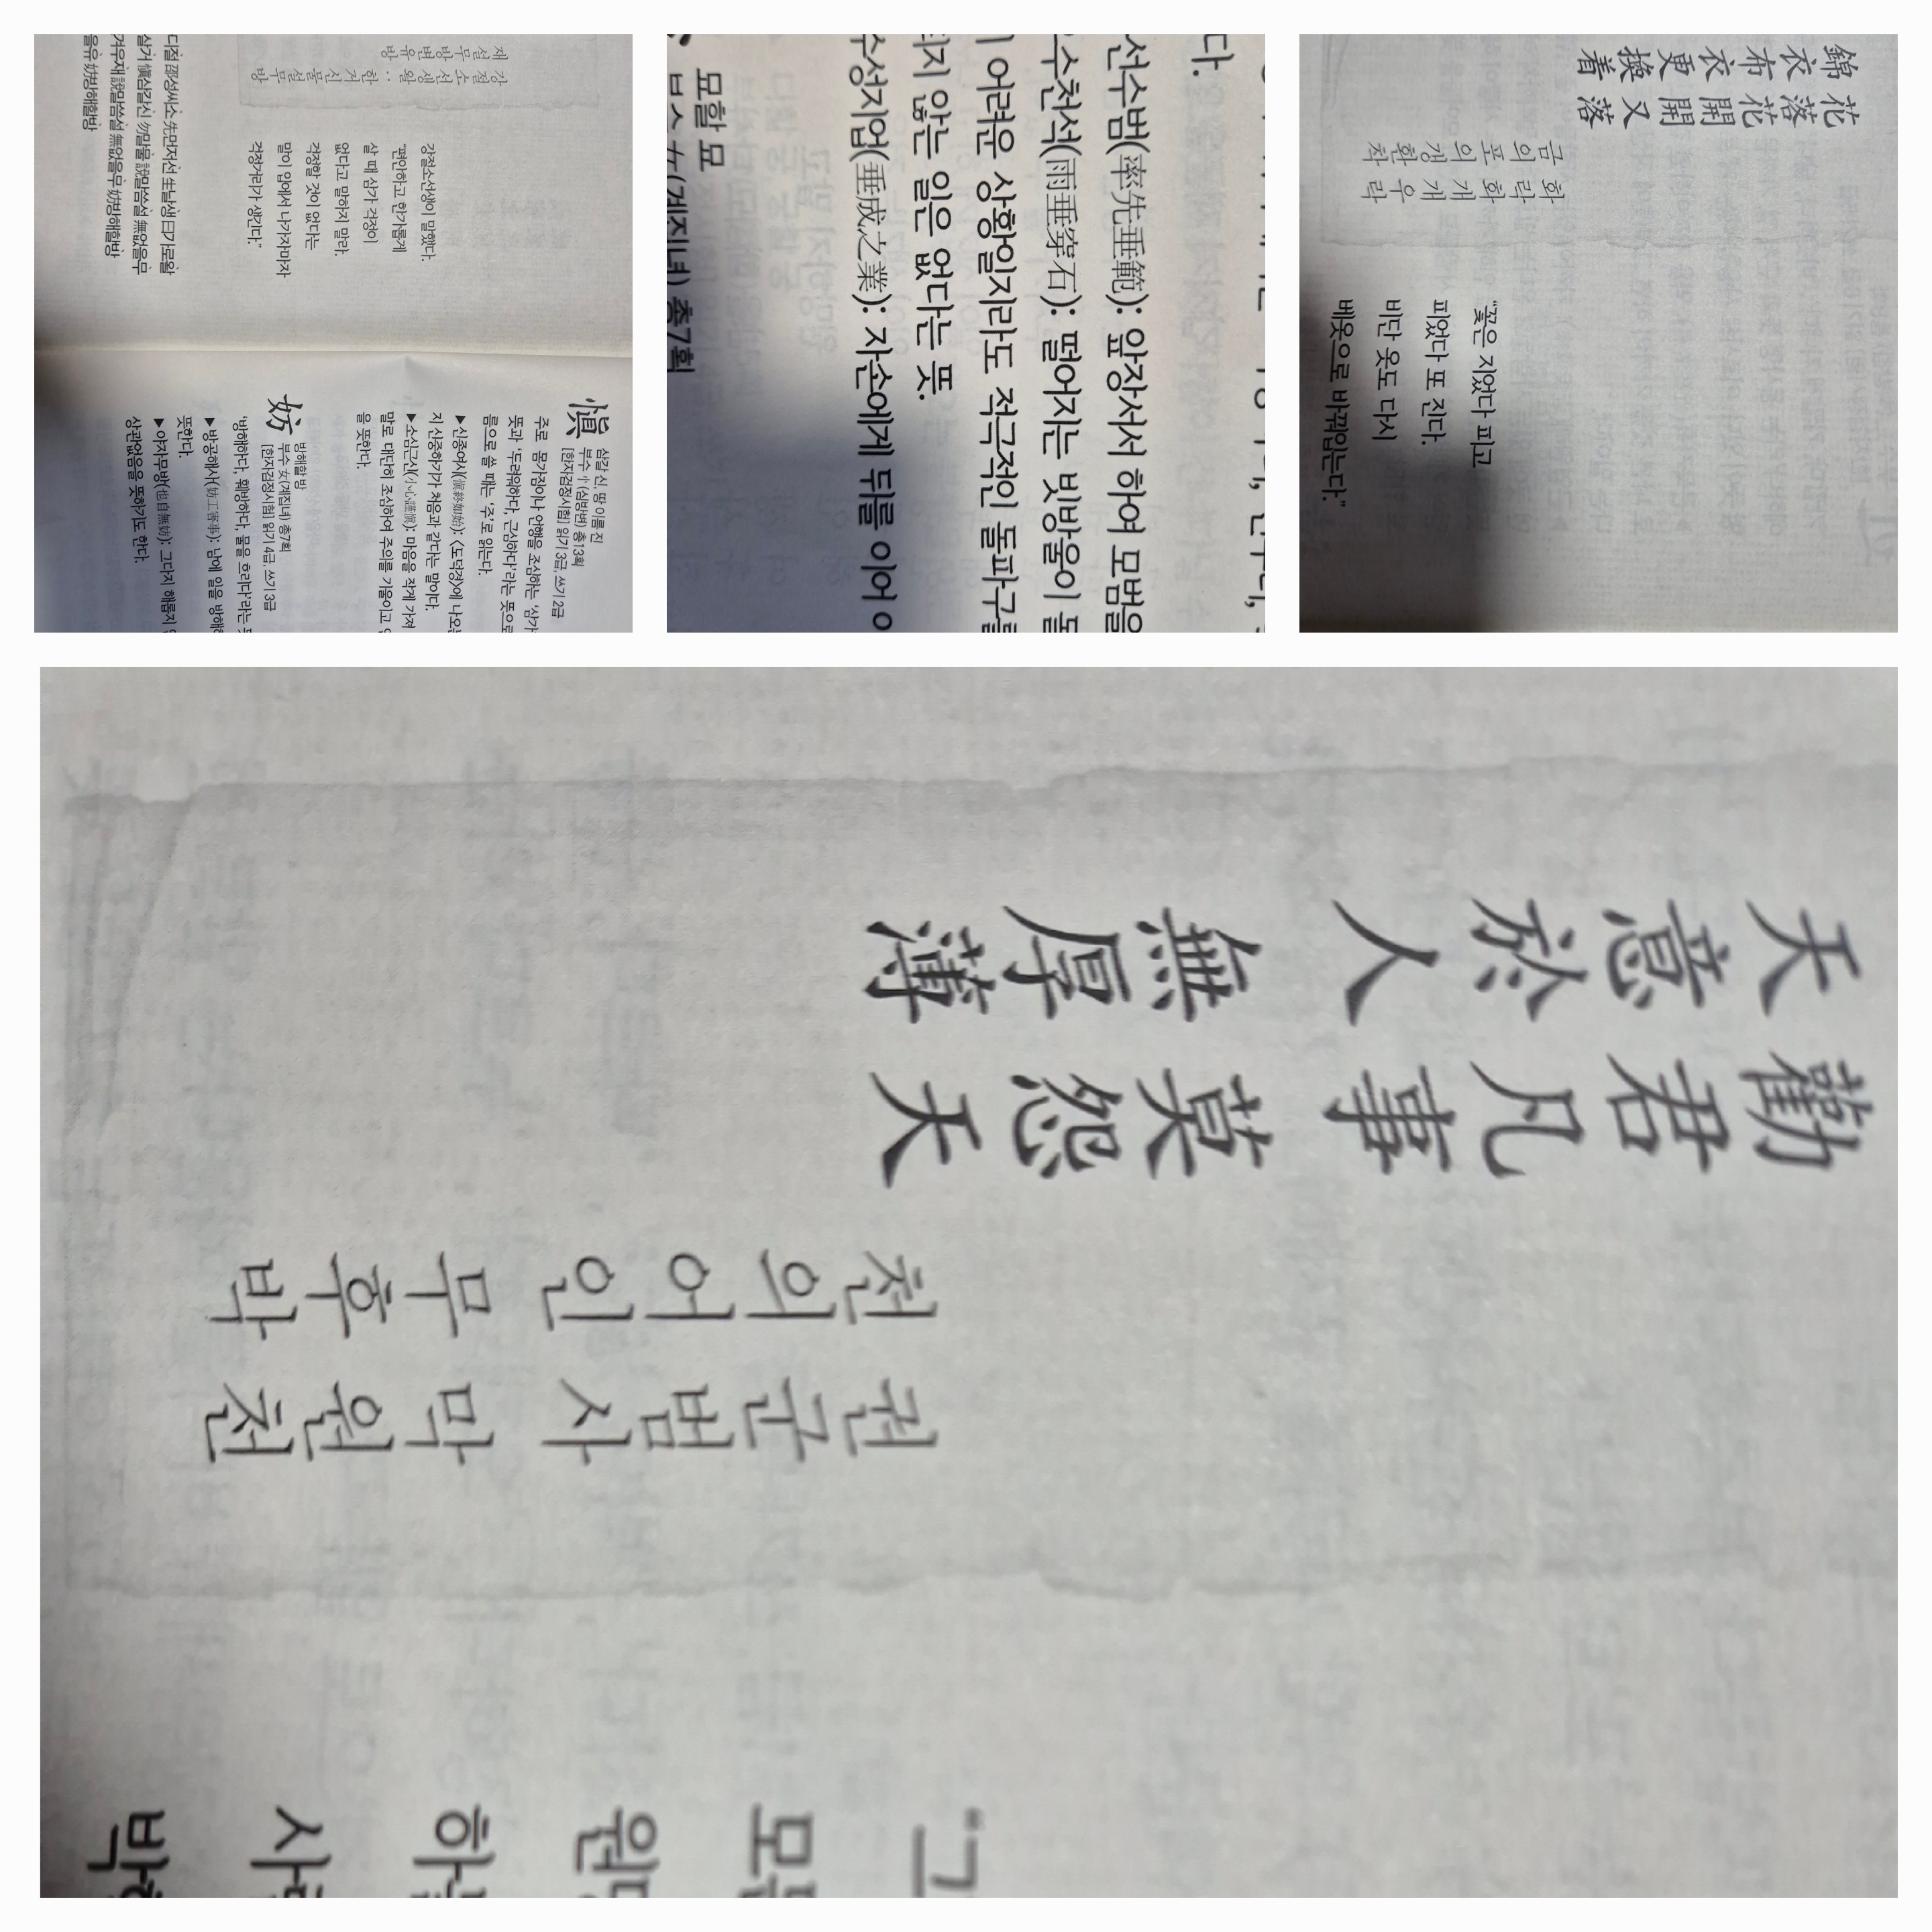 강절소선생왈 : 한거신물설무방
재설무방변유방
강절소선생이 말했다.
"편안하고 한가롭게
살 때 삼가 걱정이
없다고 말하지 말라.
걱정할 것이 없다는
말이 입에서 나가자마자
걱정거리가 생긴다."
디절 邵성씨소 先먼저선 生날생 曰가로왈
살거 愼삼갈신 勿말물 說말씀설 無없을무
겨우재 說말씀설 無없을무 妨방해할방
을유 妨방해할방
愼
삼갈 신, 땅 이름 진
부수 忄(심방변) 총13획
[한자검정시험] 읽기 3급, 쓰기 2급
주로 몸가짐이나 언행을 조심하는 '삼가
뜻과 '두려워하다, 근심하다'라는 뜻으로
름으로 쓸 때는 '주'로 읽는다.
▶신종여시(愼終如始): 〈도덕경〉에 나오는
지 신중하기가 처음과 같다는 말이다.
▶소심근신(小心謹愼): 마음을 작게 가져
말로 대단히 조심하여 주의를 기울이고
을 뜻한다.
妨
방해할 방
부수 女(계집녀) 총7획
[한자검정시험] 읽기 4급, 쓰기 3급
'방해하다, 훼방하다, 물을 흐리다'라는
▶방공해사(妨工害事): 남에 일을 방해하
뜻한다.
▶야자무방(也自無妨): 그다지 해롭지
상관없음을 뜻하기도 한다.
다.
선수범(率先垂範): 앞장서서 하여 모범을
수천석(雨垂穿石): 떨어지는 빗방울이 돌
어려운 상황일지라도 적극적인 돌파구를
되지 않는 일은 없다는 뜻.
수성지업(垂成之業): 자손에게 뒤를 이어
모할 모
부수 女(계집녀) 총7획
花落花開開又落
錦衣布衣更換着
화락화개개우락
금의포의갱환착
"꽃은 지었다 피고
피었다 또 진다.
비단 옷도 다시
베옷으로 바꿔입는다."
勸君凡事莫怨天
天意於人無厚薄
권군범사 막원천
천의어인 무후박
"그
모든
원망
하늘
사람
박하